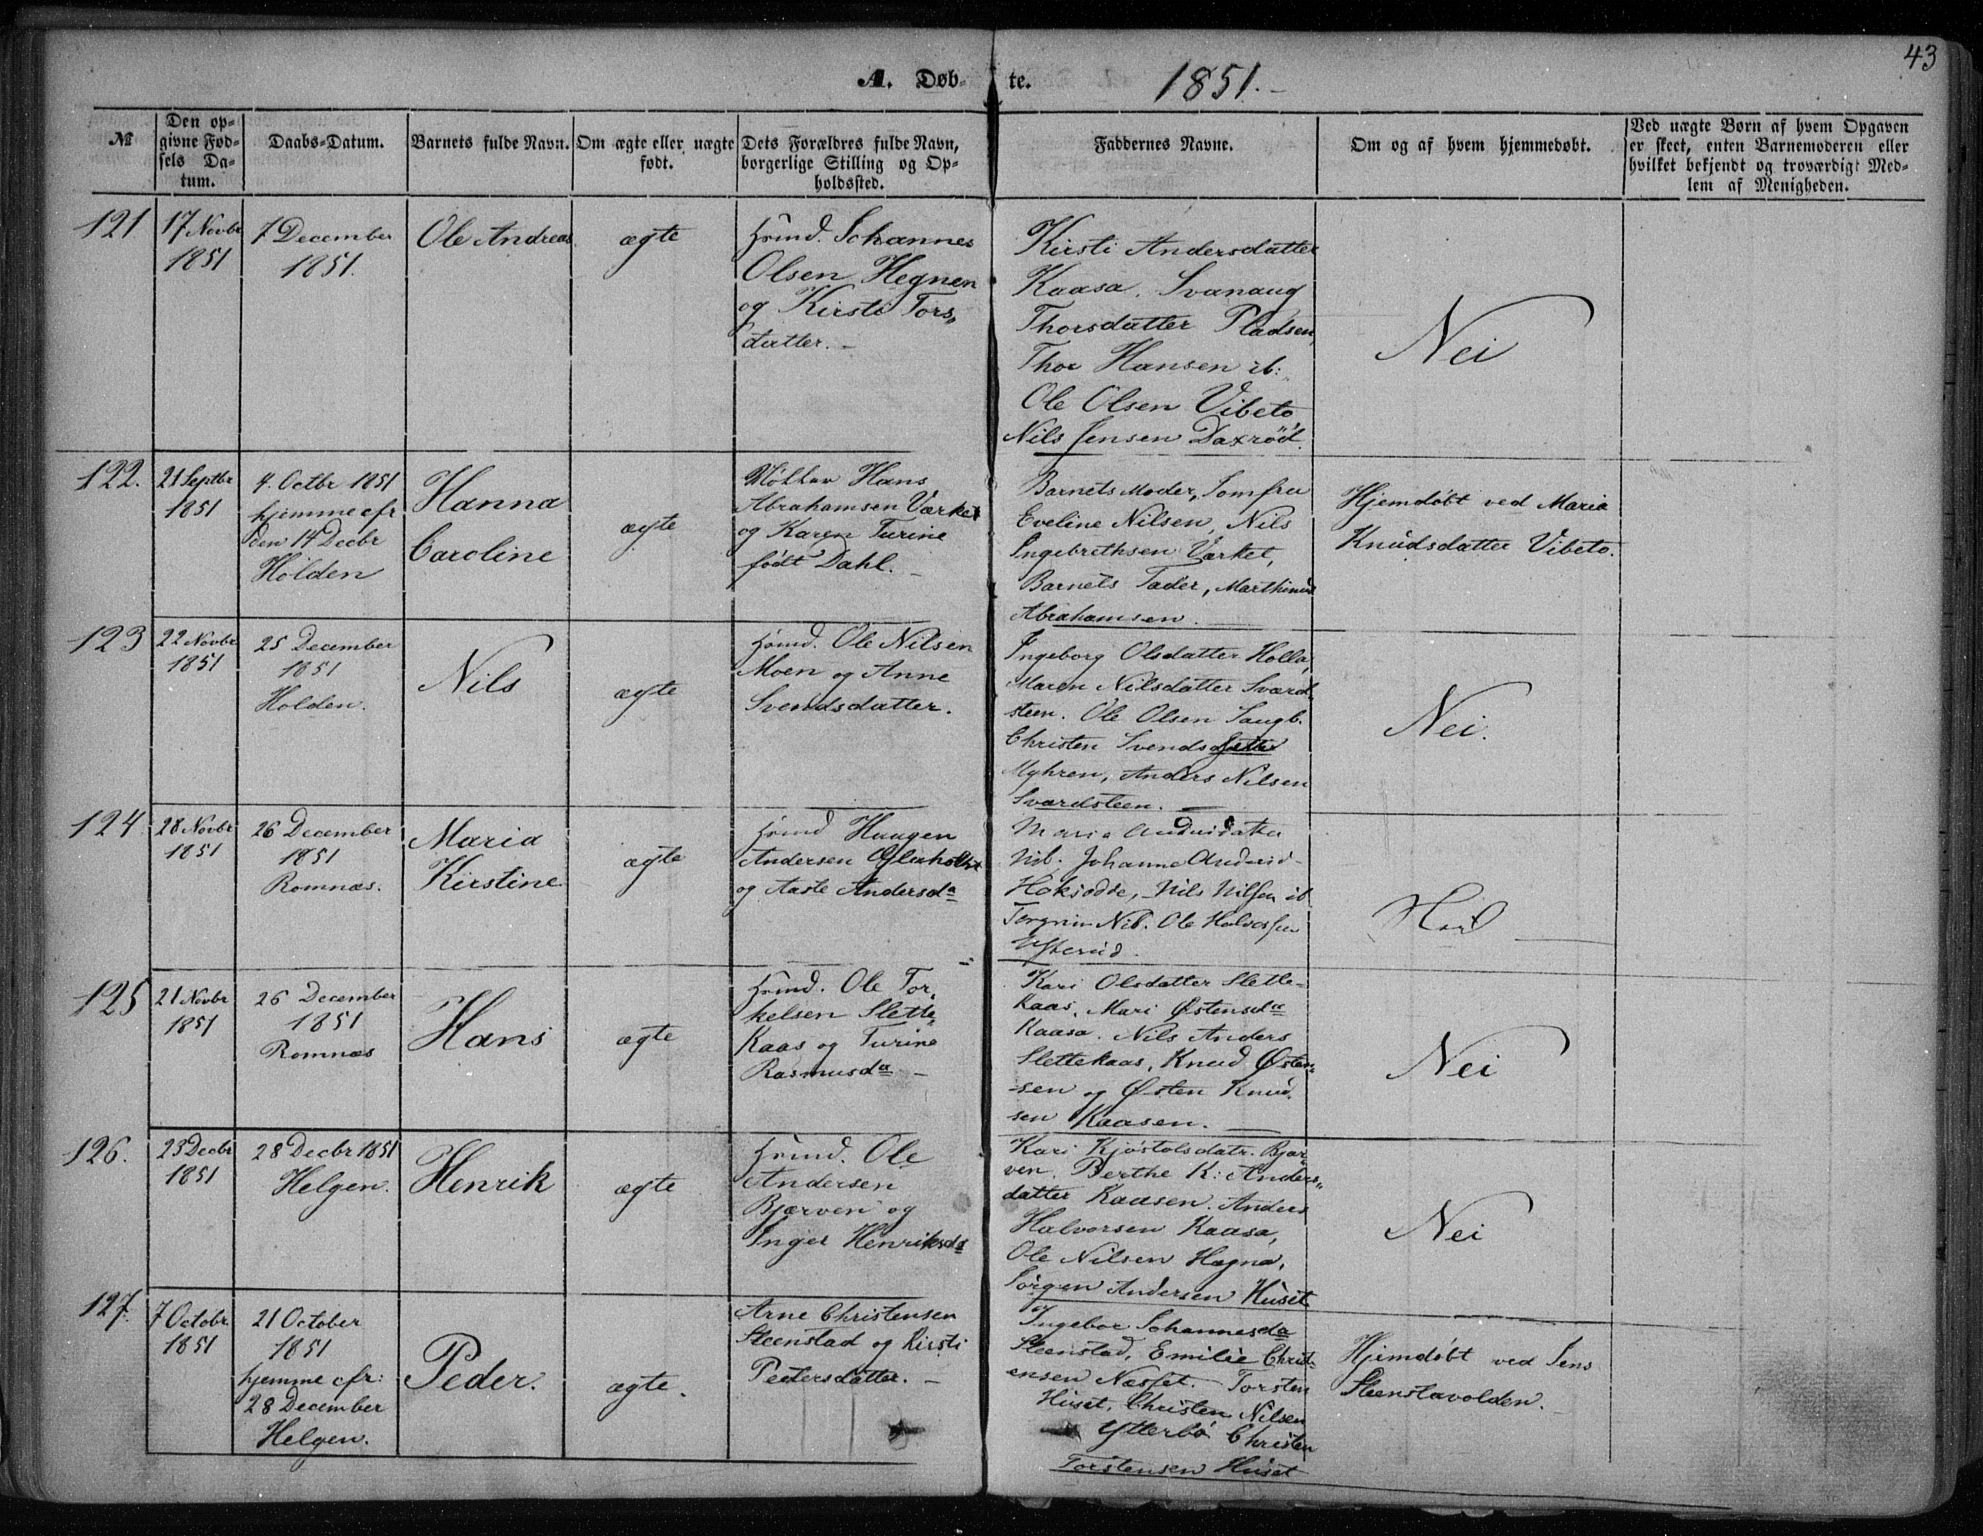 43
A. Døb- te. 1851.-
№
Den op-
givne Fød-
sels Da-
tum.
Daabs-Datum.
Barnets fulde Navn.
Om ægte eller uægte
født.
Dets Forældres fulde Navn,
borgerlige Stilling og Op-
holdssted.
Faddernes Navne.
Om og af hvem hjemmedøbt.
Ved uægte Børn af hvem Opgaven
er skeet, enten Barnemoderen eller
hvilket bekjendt og troværdigt Med-
lem af Menigheden.
121
17 Novbr
1851
7 December
1851.
Ole Andreas
ægte
Hsmd. Johannes
Olsen Hegnen
og Kirsti Tors-
datter. -
Kirsti Andersdatter
Kaasa. Svanaug
Thorsdatter Pladsen
Thor Hansen ib:
Ole Olsen Vibeto
Nils Jensen Daxrød.
Nei
122.
21 Septbr
1851
4. Octbr 1851
hjemme cfr
den 14 Decbr
Holden
Hanna
Caroline
ægte
Møller Hans
Abrahamsen Værket
og Karen Turine
født Dahl. -
Barnets Moder, Jomfru
Eveline Nilsen, Nils
Ingebrethsen Værket,
Barnets Fader, Marthinius
Abrahamsen.
Hjemdøbt ved Maria
Knudsdatter Vibeto.
123
22 Novbr
1851
25 December
1851
Holden.
Nils
ægte
Hsmd. Ole Nilsen
Moen og Anne
Svendsdatter.
Ingeborg Olsdatter Holla,
Maren Nilsdatter Sværd-
steen. Ole Olsen Saugb.
Christen Svends
Myhren, Anders Nilsen
Sværdsteen.
Nei.
124
28 Novbr
1851
26 December
1851
Romnæs.
Maria
Kirstine
ægte
Hsmd Haagen
Andersen
og Aaste Andersda
Maria
Nib. Johanne
Nils Nilsen ib
Nib. Ole Halvorsen
125
21 Novbr
1851
26 December
1851
Romnæs
Hans
ægte
Hsmd. Ole Tor-
kelsen Slette-
Kaas og Turine
Rasmusda -
Kari Olsdatter Slette-
kaas. Mari Østensda
Kaasa. Nils Anders
Slettekaas, Knud Østen-
-sen og Østen Knud-
sen Kaasen.
Nei
126.
23 Decbr
1851
28 Decbr 1851
Helgen.
Henrik
ægte
Hsmd. Ole
Andersen
Bjærven og
Inger Henriksda
Kari Kjøstolsdatr. Bjær-
ven. Berthe K: Anders-
datter Kaasen. Anders
Halvorsen Kaasa,
Ole Nilsen Hagna.
Jørgen Andersen Huset
Nei
127.
7 Octobr
1851
21 October
1851
hjemme cfr:
28 December
Helgen.
Peder.
ægte.
Arne Christensen
Steenstad og Kirsti
Peetersdatter. -
Ingebor Johannesda
Steenstad, Emilie Christ-
ensen Næsset. Torsten
Huset, Christen Nilsen
Ytterbø Christen
Torstensen Huset
Hjemdøbt ved Jens
Steenstavolden.